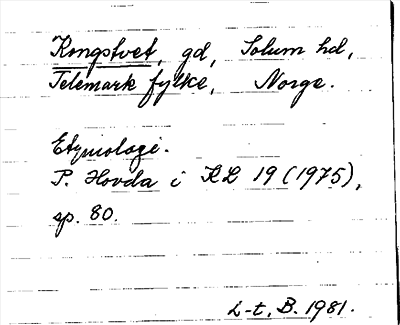 Kongstvet, gd, Solum hd,
Telemark fylke, Norge.
Etymologi.
P. Hovda i KL 19 (1975),
sp. 80.
L-t, B. 1981.